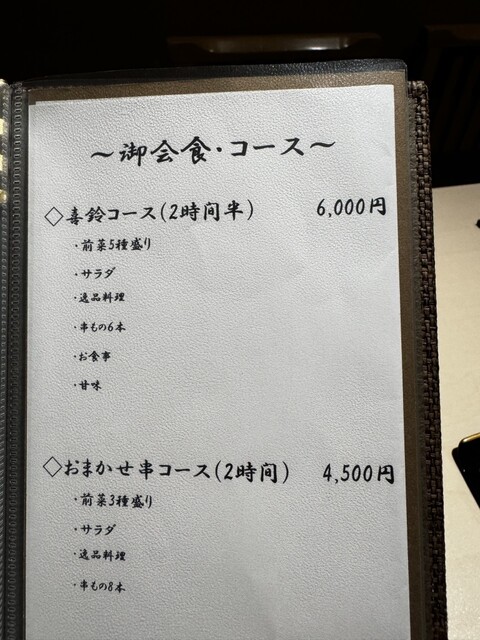 ～御会食・コース～
◇喜鈴コース(2時間半) 6,000円
・前菜5種盛り
・サラダ
・逸品料理
・串もの6本
・お食事
・甘味
◇おまかせ串コース(2時間) 4,500円
・前菜3種盛り
・サラダ
・逸品料理
・串もの8本